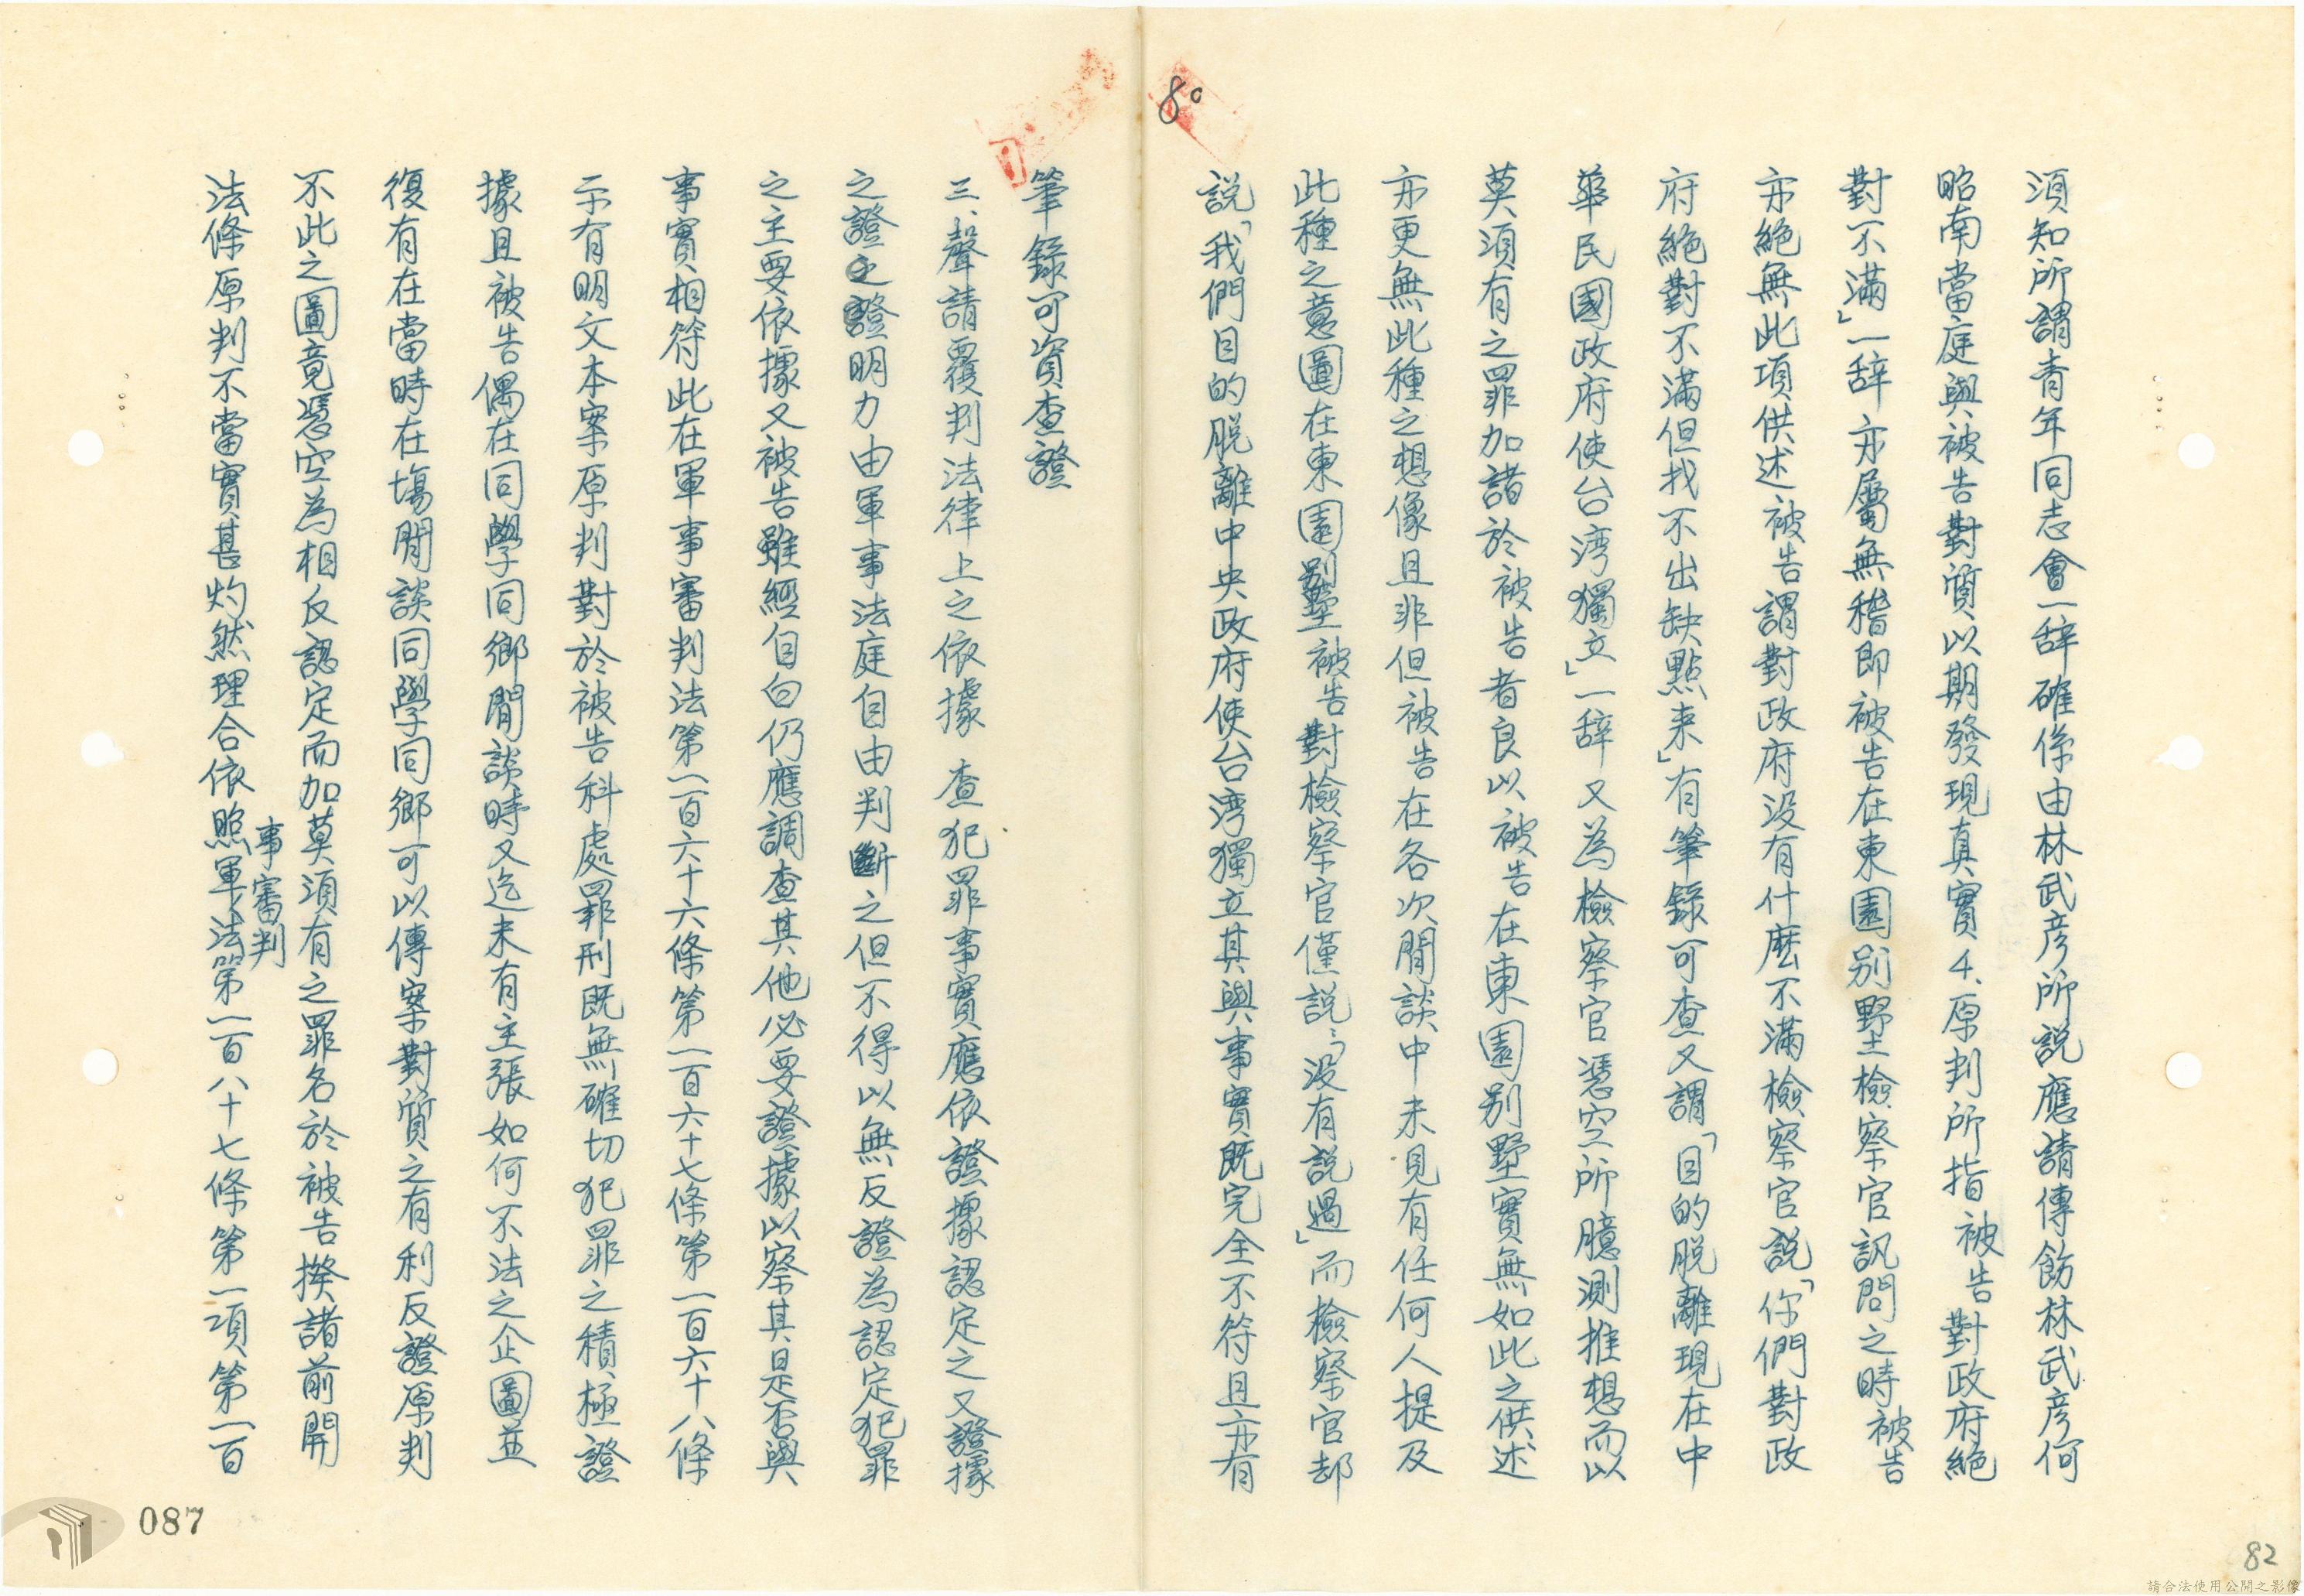 80
須知所謂青年同志會一辞確係由林武彦所說應請傳飭林武彦何
昭南當庭與被告對質以期發現真實4.原判所指被告對政府絕
對不滿」一辞亦屬無稽即被告在東園別墅檢察官訊問之時被告
亦絕無此項供述被告謂對政府没有什麽不滿檢察官說「你們對政
府絕對不滿但找不出缺點来」有筆錄可查又謂「目的脱離現在中
華民國政府使台湾獨立」一辞又為檢察官憑空所臆測推想而以
莫須有之罪加諸於被告者良以被告在東園别墅實無如此之供述
亦更無此種之想像且非但被告在各次閒談中未見有任何人提及
此種之意圖在東園别墅被告對檢察官僅說:「没有說過」而檢察官却
說「我們目的脱離中央政府使台湾獨立其與事實既完全不符且亦有
筆錄可資查證
三、聲請覆判法律上之依據 查犯罪事實應依證據認定之又證據
之證明力由軍事法庭自由判斷之但不得以無反證為認定犯罪
之主要依據又被告雖經自白仍應調查其他必要證據以察其是否與
事實相符此在軍事審判法第一百六十六條第一百六十七條第一百六十八條
示有明文本案原判對於被告科處罪刑既無確切犯罪之積極證
據且被告偶在同學同鄉閒談時又迄未有主張如何不法之企圖並
復有在當時在場閒談同學同鄉可以傳案對質之有利反證原判
不此之圖竟憑空為相反認定而加莫須有之罪名於被告揆諸前開
法條原判不當實甚灼然理合依照軍事審判法第一百八十七條第一項第一百
087
82
請合法使用公開之影像